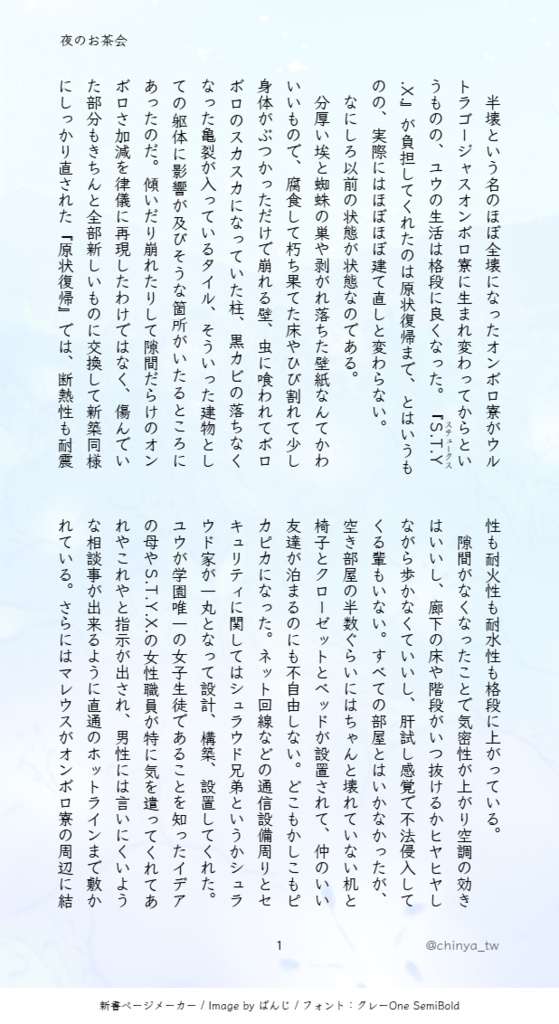 夜のお茶会
半壊という名のほぼ全壊になったオンボロ寮がウル
トラゴージャスオンボロ寮に生まれ変わってからとい
うものの、ユウの生活は格段に良くなった。『S.T.Y
ステュークス
.X』が負担してくれたのは原状復帰まで、とはいうも
のの、実際にはほぼほぼ建て直しと変わらない。
なにしろ以前の状態が状態なのである。
分厚い埃と蜘蛛の巣や剥がれ落ちた壁紙なんてかわ
いいもので、腐食して朽ち果てた床やひび割れて少し
身体がぶつかっただけで崩れる壁、虫に喰われてボロ
ボロのスカスカになっていた柱、黒カビの落ちなく
なった亀裂が入っているタイル、そういった建物とし
ての躯体に影響が及びそうな箇所がいたるところに
あったのだ。傾いだり崩れたりして隙間だらけのオン
ボロさ加減を律儀に再現したわけではなく、傷んでい
た部分もきちんと全部新しいものに交換して新築同様
にしっかり直された『原状復帰』では、断熱性も耐震
性も耐火性も耐水性も格段に上がっている。
隙間がなくなったことで気密性が上がり空調の効き
はいいし、廊下の床や階段がいつ抜けるかヒヤヒヤし
ながら歩かなくていいし、肝試し感覚で不法侵入して
くる輩もいない。すべての部屋とはいかなかったが、
空き部屋の半数ぐらいにはちゃんと壊れていない机と
椅子とクローゼットとベッドが設置されて、仲のいい
友達が泊まるのにも不自由しない。どこもかしこもピ
カピカになった。ネット回線などの通信設備周りとセ
キュリティに関してはシュラウド兄弟というかシュラ
ウド家が一丸となって設計、構築、設置してくれた。
ユウが学園唯一の女子生徒であることを知ったイデア
の母やS.T.Y.X.の女性職員が特に気を遣ってくれてあ
れやこれやと指示が出され、男性には言いにくいよう
な相談事が出来るように直通のホットラインまで敷か
れている。さらにはマレウスがオンボロ寮の周辺に結
1
@chinya_tw
新書ページメーカー / Image by ぱんじ / フォント：クレーOne SemiBold